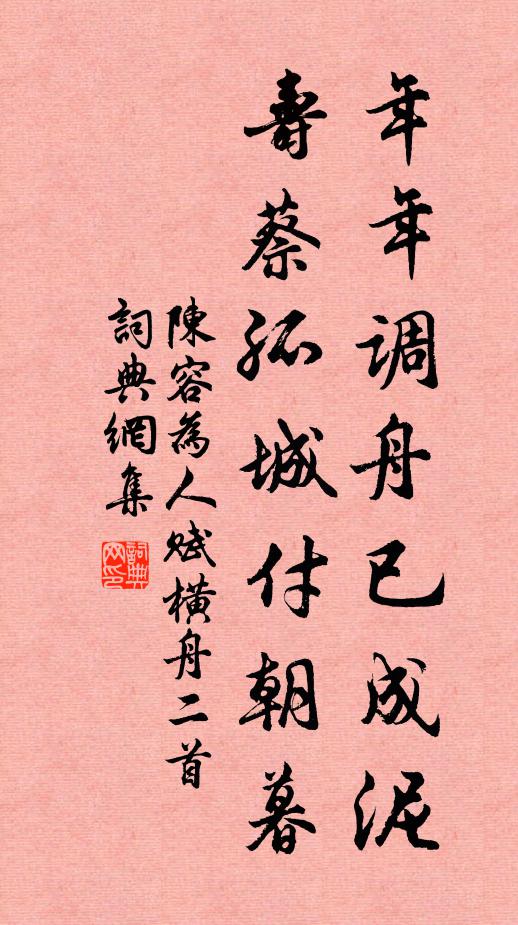 年年调舟已成泥
壽蔡孤城付朝暮
陳容為人賦橫舟二首
詞典網集
詞典網印